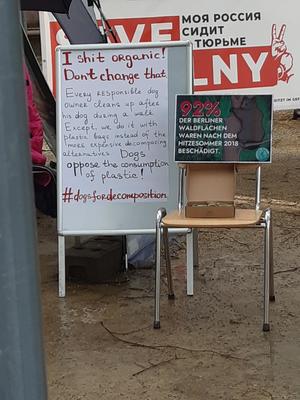 МОЯ РОССИЯ
СИДИТ
ТЮРЬМЕ
LNY
I shit organic!
Dont change that
Every responsible dog
owner cleans up after
his dog during a walk.
Except, we do it with
plastic bags instead of the
more expensive decomposing
alternatives. Dogs
oppose the consumption
of plastic!
#dogsfordecomposition
92%
DER BERLINER
WALDFLÄCHEN
WAREN NACH DEM
HITZESOMMER 2018
BESCHÄDIGT.